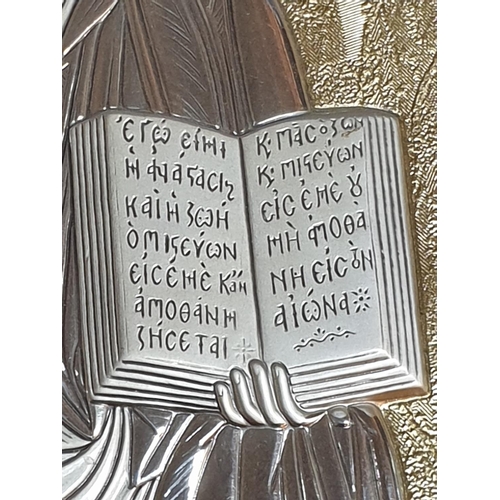 ἘΓῶ ΕἰΜΙ
Ἡ ἈΝΆϚΑCΙC
ΚΑῚ Ἡ ΖΩΉ
Ὁ ΠΙϚΕΎΩΝ
ΕἸC ἘΜῈ ΚἂΝ
ἈΠΟΘΆΝΗ
ΖΉCΕΤΑΙ
Κ, ΠᾶC Ὁ ΖῶΝ
Κ, ΠΙϚΕΎΩΝ
ΕἸC ἘΜῈ ΟΥ̓
ΜῊ ἈΠΟΘΆ
ΝΗ ΕἸC ΤῸΝ
ΑἸῶΝΑ